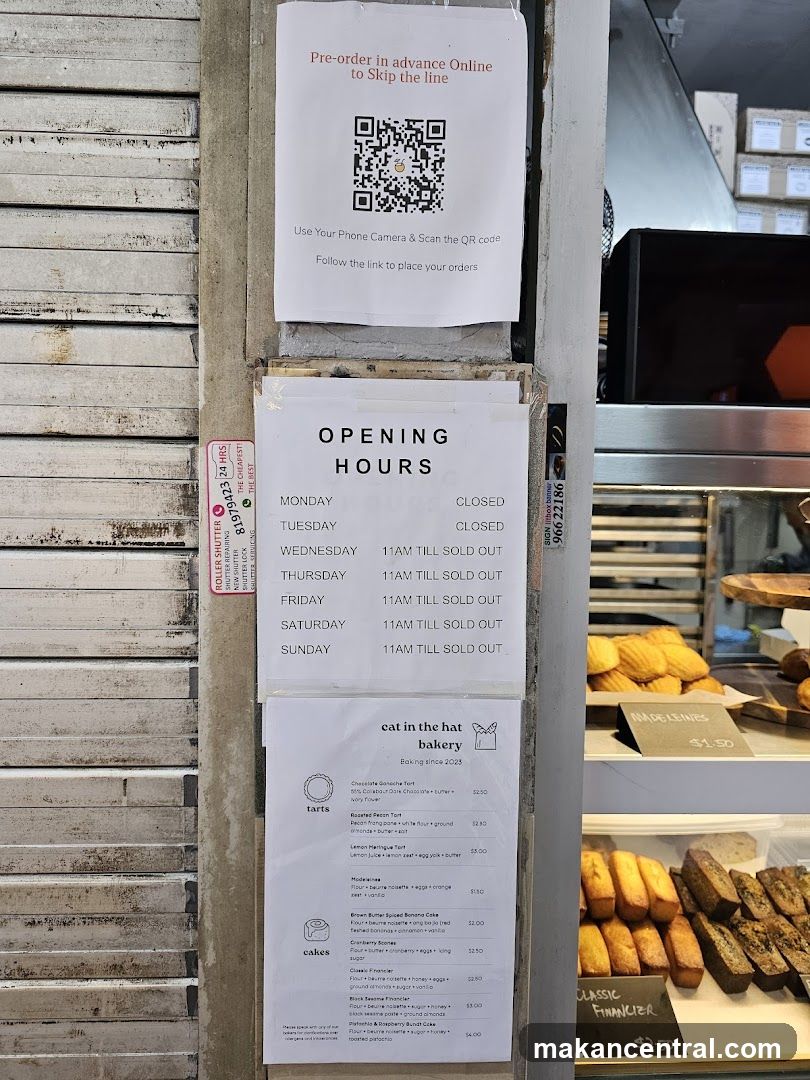 Pre-order in advance Online
to Skip the line
Use Your Phone Camera & Scan the QR code
Follow the link to place your orders
OPENING
HOURS
MONDAY CLOSED
TUESDAY CLOSED
WEDNESDAY 11AM TILL SOLD OUT
THURSDAY 11AM TILL SOLD OUT
FRIDAY 11AM TILL SOLD OUT
SATURDAY 11AM TILL SOLD OUT
SUNDAY 11AM TILL SOLD OUT
ROLLER SHUTTER 24 HRS
81979423
THE CHEAPEST!
THE BEST
SHUTTER REPAIRING
NEW SHUTTER
SHUTTER LOCK
SHUTTER SERVICING
SIGN litbox banner
966 22186
cat in the hat
bakery
Baking since 2023
tarts
Chocolate Ganache Tart
55% Callebaut Dark Chocolate + butter +
ivory flower
$2.50
Roasted Pecan Tart
Pecan frangipane + white flour + ground
almonds + butter + salt
$2.80
Lemon Meringue Tart
Lemon juice + lemon zest + egg yolk + butter
$3.00
Madeleines
Flour + beurre noisette + eggs + orange
zest + vanilla
$1.50
cakes
Brown Butter Spiced Banana Cake
Flour + beurre noisette + ang ba jio (red
fleshed bananas + cinnamon + vanilla
$2.00
Cranberry Scones
Flour + butter + cranberry + eggs + icing
sugar
$2.50
Classic Financier
Flour + beurre noisette + honey + eggs +
ground almonds + sugar + vanilla
$2.50
Black Sesame Financier
Flour + beurre noisette + sugar + honey +
black sesame paste + ground almonds
$3.00
Pistachio & Raspberry Bundt Cake
Flour + beurre noisette + sugar + honey +
toasted pistachio
$4.00
Please speak with any of our
bakers for clarifications over
allergens and intolerances
MADELEINES
$1.50
CLASSIC
FINANCIER
makancentral.com